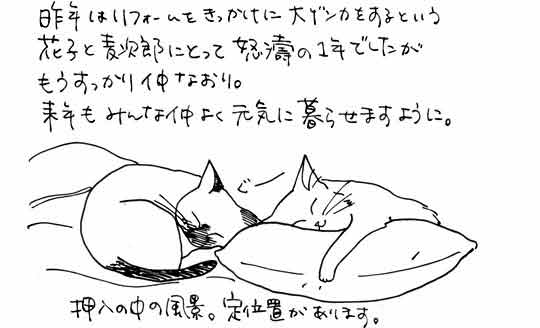 昨年はリフォームをきっかけに大ゲンカをするという
花子と麦次郎にとって怒濤の1年でしたが
もうすっかり仲なおり。
来年もみんな仲よく元気に暮らせますように。
ぐー
押入の中の風景。定位置があります。